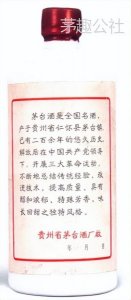 茅趣公社
茅台酒是全国名酒，
产于贵州省仁怀县茅台镇，
已有二百余年的悠久历史。
解放后在中国共产党领导
下，开展三大革命运动，
不断地总结传统经验，改
进技术，提高质量，具有
醇和浓郁、特殊芳香、味
长回甜之独特风格。
贵州省茅台酒厂敬
年 月 日